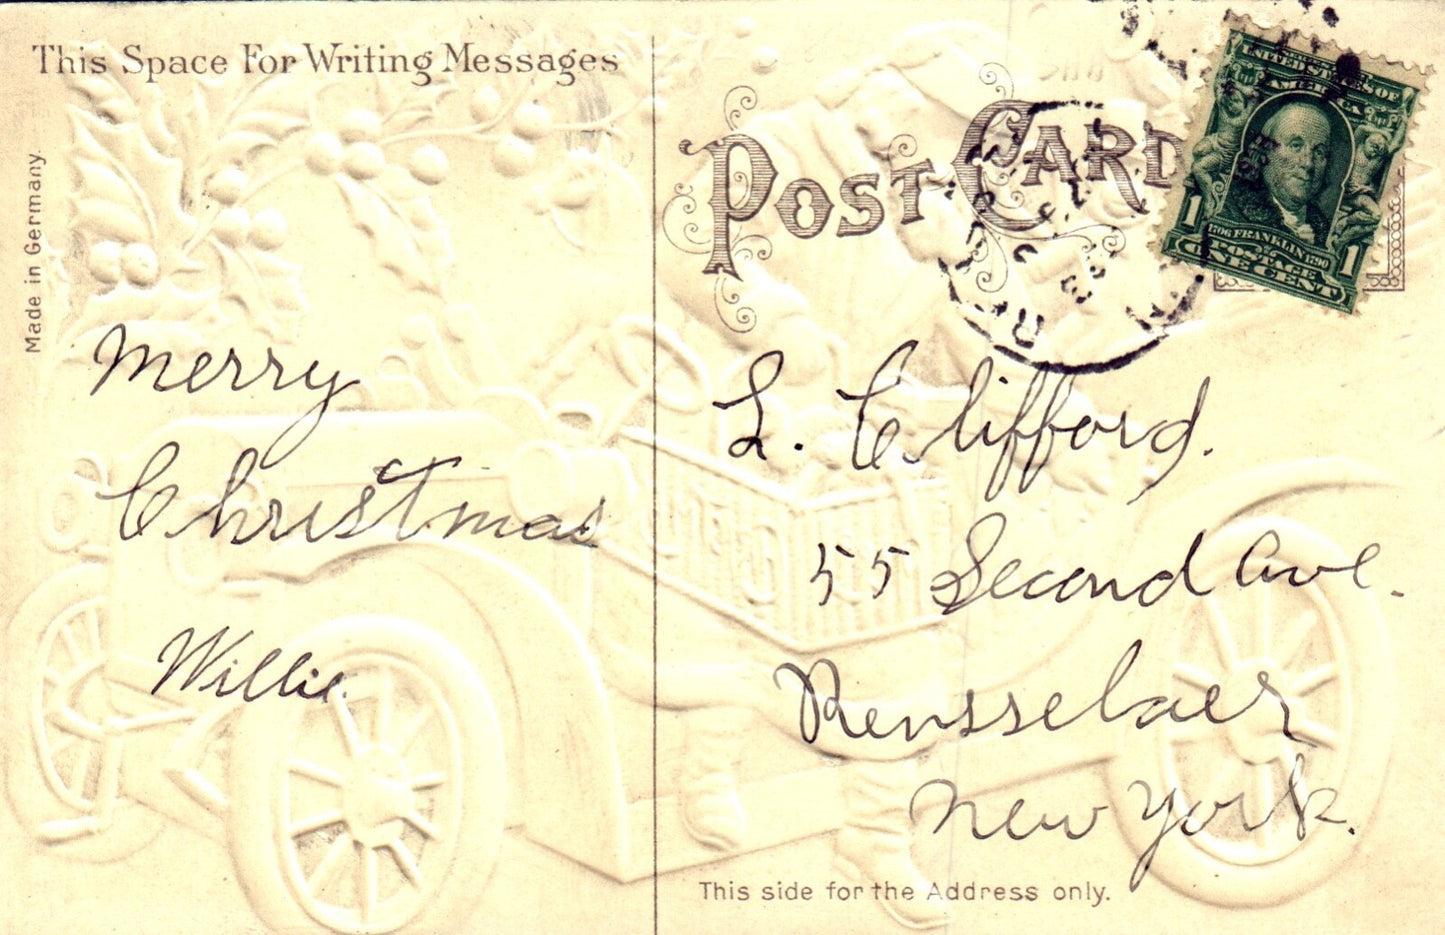 This Space For Writing Messages
Made in Germany.
Merry
Christmas
Willie.
POST CARD
UNITED STATES OF
AMERICA
1706 FRANKLIN 1790
POSTAGE
1 ONE CENT 1
L. Clifford.
55 Second Ave.
Rensselaer
New York.
This side for the Address only.